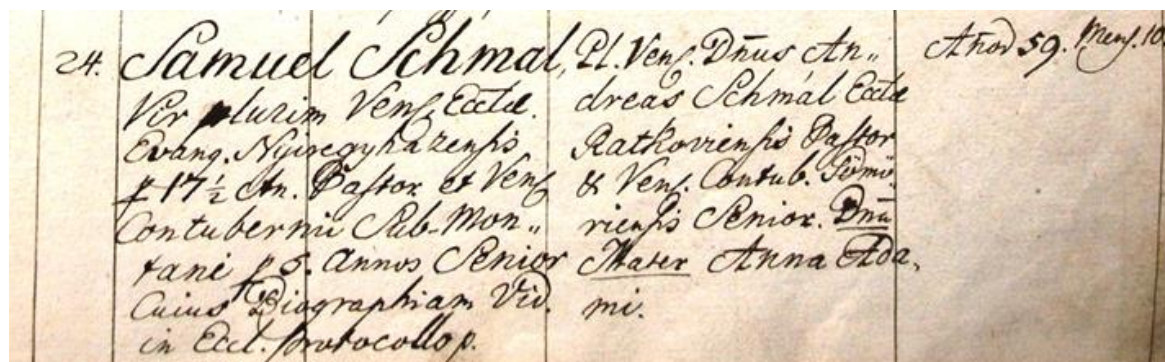 24. Samuel Schmal,
Vir plurim Ven. Eccl.
Evang. Nyiregyházensis
p 17 1/2 An. Pastor et Ven
Contubernii Sub-Mon„
tani p 5. Annos Senior
Cuius Biographiam Vid.
in Eccl. protocollo p.
Pl. Ven. Dnus An„
dreas Schmál Eccl
Ratkoviensis Pastor
& Ven. Contub. Gömö
riensis Senior. Dnu
Mater Anna Ada„
mi.
Anor 59. Mens. 10